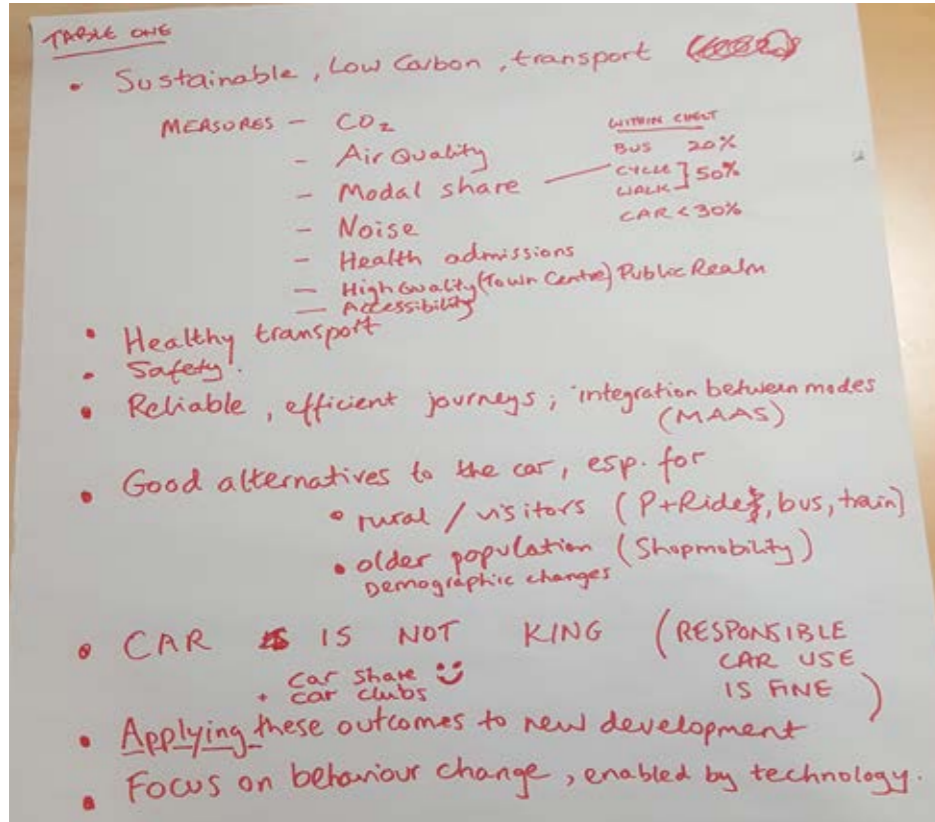 TABLE ONE
• Sustainable, Low Carbon, transport
MEASURES – CO2
– Air Quality
– Modal share
– Noise
– Health admissions
– High Quality (Town Centre) Public Realm
– Accessibility
WITHIN CHELT
BUS 20%
CYCLE ] 50%
WALK
CAR < 30%
• Healthy transport
• Safety.
• Reliable, efficient journeys; integration between modes
(MAAS)
• Good alternatives to the car, esp. for
• rural / visitors (P+Ride, bus, train)
• older population (Shopmobility)
Demographic changes
• CAR IS NOT KING (RESPONSIBLE
CAR USE
IS FINE)
car share
+ car clubs
• Applying these outcomes to new development
• Focus on behaviour change, enabled by technology.